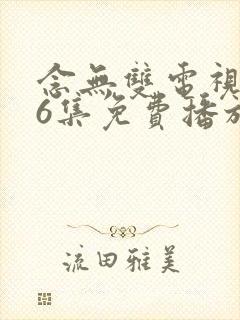 念無雙電視
6集免費播放
流田雅美